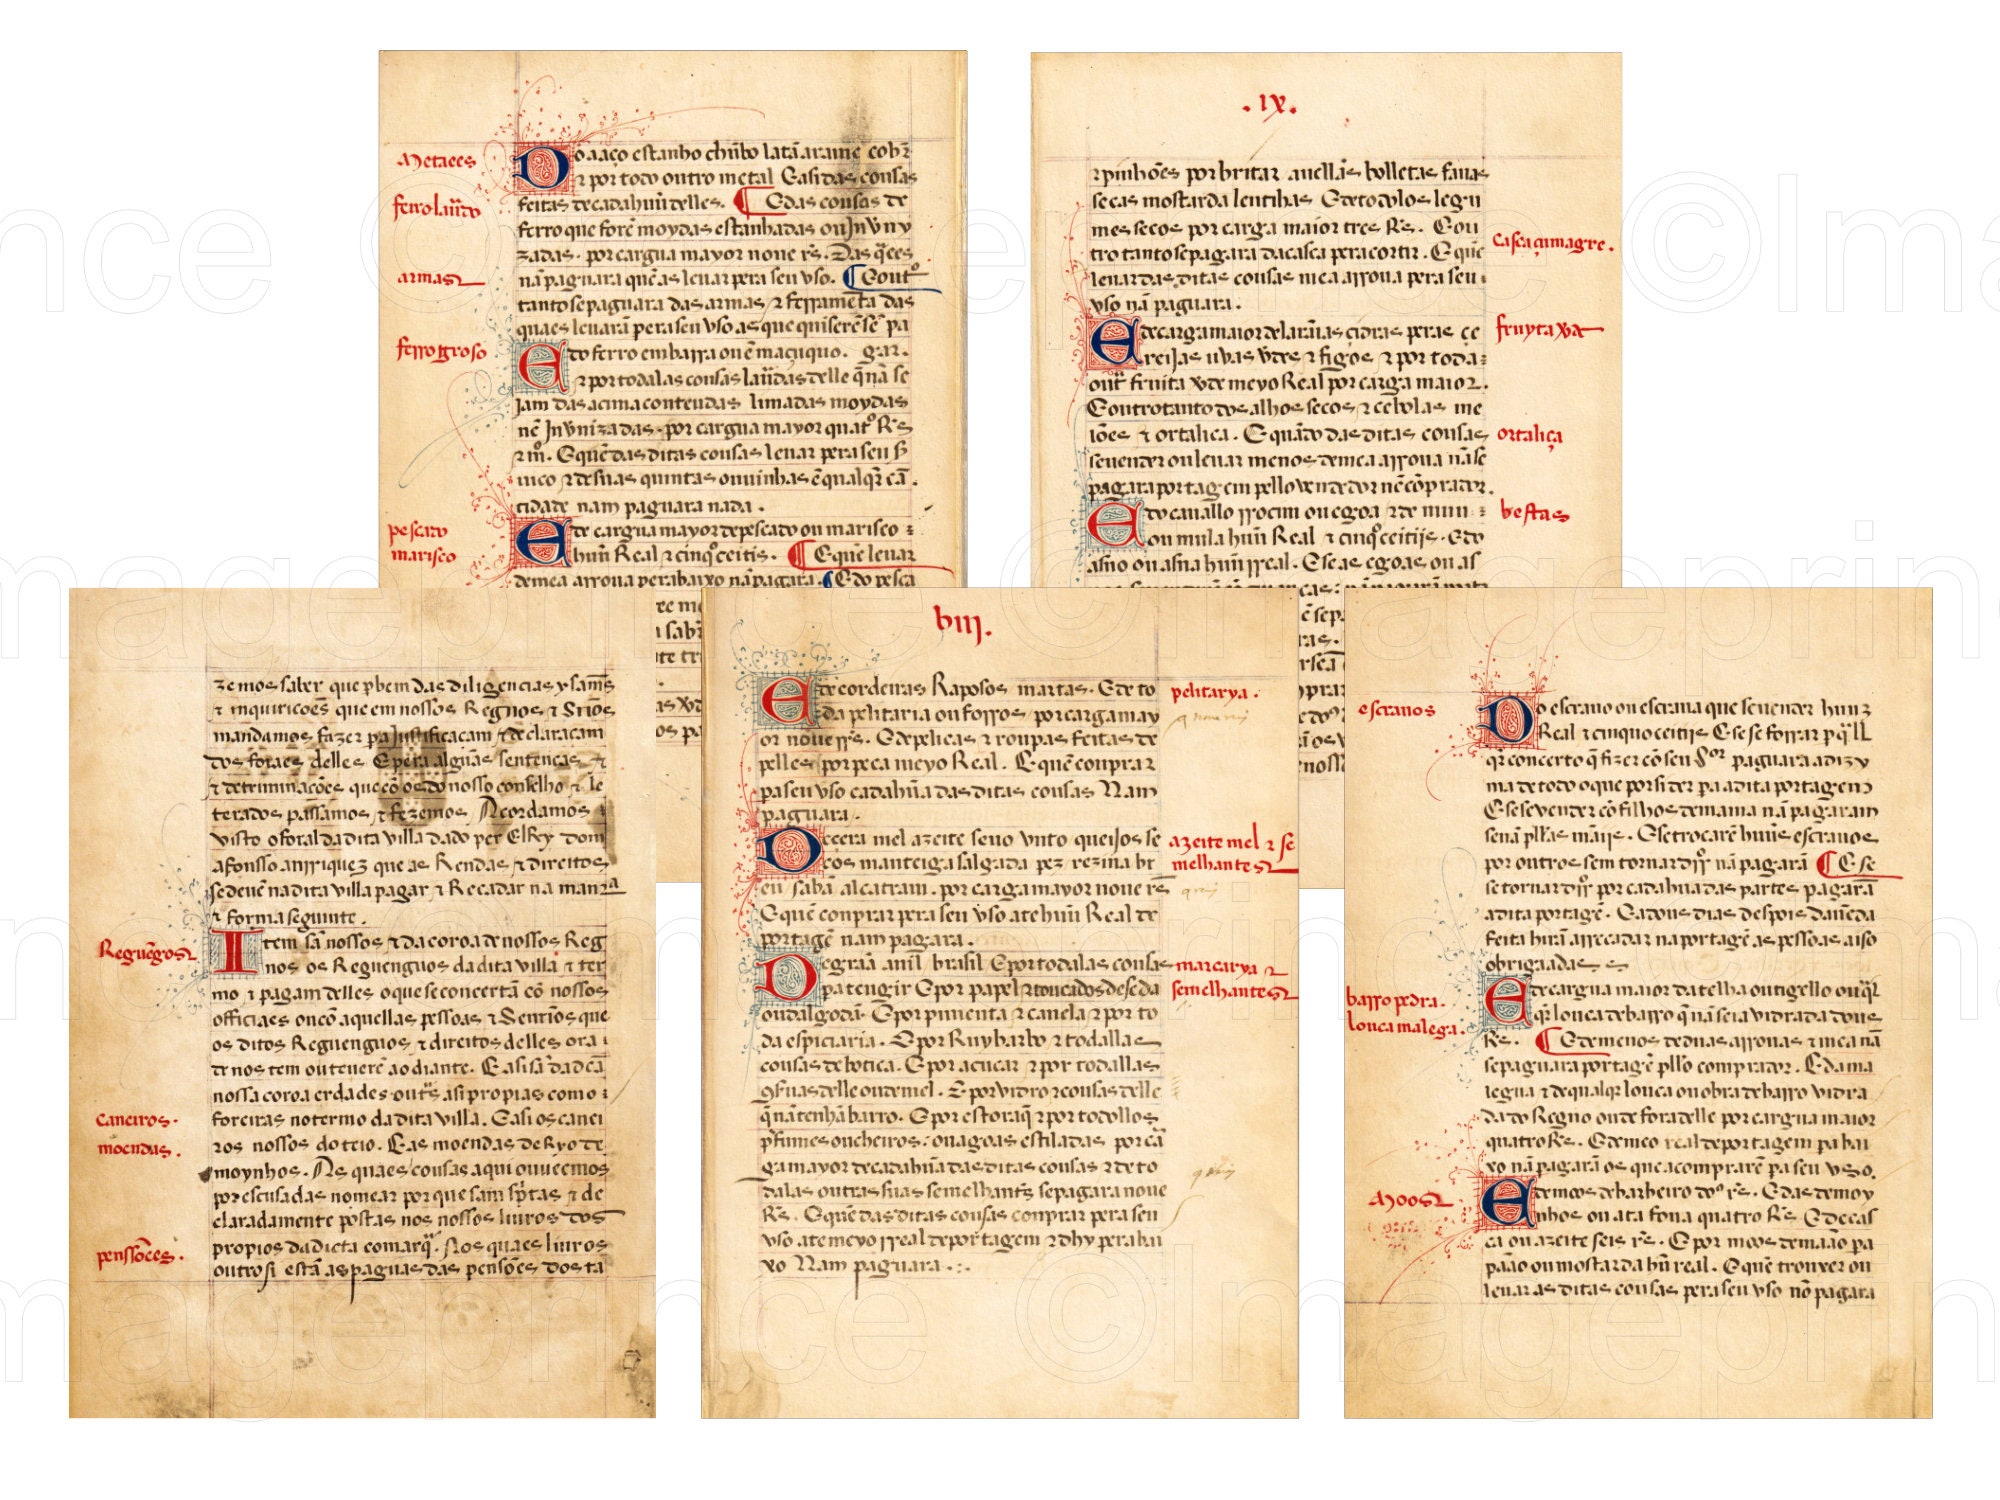 Metaees
ferro laurado
armas
ferro grosso
pescado
marisco
Do aço estanho chũbo latã arame cobr
e por todo outro metal E asi das cousas
feitas de cada huũ delles. E das cousas de
ferro que forē moydas estanhadas ou Jnvny
zadas. por cargua mayor noue rs. Das q̃ees
nã paguara quē as leuar pera seu vso. E out
tanto se paguara das armas e ferramēta das
quaes leuarã pera seu vso as que quiserē sē pa
E do ferro em barra ou ē maçuquo. gar.
e por todalas cousas laũdas delle q̃ nã se
jam das acima contendas limadas moydas
nē Jnvnizadas. por cargua mayor quatº Rs
E quē das ditas cousas leuar pera seu
uico e de suas quintas ou uinhas ē qualqr cã
tidade nam paguara nada.
E de cargua mayor de pescado ou marisco
huũ Real e cinqº ceitis. E que leuar
de mea arroua pera baixo nã pagara. E do pesca
.ix.
e pinhões por britar auellãs bolletas fauas
secas mostarda lentilhas E de todolos legu
mes secos por carga maior tres Rs. E ou
tro tanto se pagara da casca pera cortir. E que
leuar das ditas cousas mea arroua pera seu
vso nã paguara.
E de carga maior de larãias cidras peras ce
reijas uvas vdes e figos e por toda
out fruita vde meyo Real por carga maior.
E outro tanto dos alhos secos e cebolas me
lões e ortaliça. E quãdo das ditas cousas
se uender ou leuar menos de mea arroua nã se
pagara portagem pello vendedor nē cõprador.
E do cauallo rrocim ou egoa e de muu
ou mula huũ Real e cinqº ceitijs. E do
asno ou asna huũ rreal. E se as egoas ou as
casca çumagre.
fruyta vda
ortaliça
bestas
zemos saber que p bem das diligencias y sam̃s
e inquiricões que em nossos Regnos e Srios
mandamos fazer pa justificacam e declaracam
dos foraes delles E pera algũas sentenças e
e detriminações que cõ os do nosso conselho e le
terados passamos e fezemos Acordamos
visto o foral da dita villa dado per ElRey dom
afonsso anrriquez que as Rendas e direitos
se deuē na dita villa pagar e Recadar na man̄ra
e forma seguinte.
Item sã nossos e da coroa de nossos Reg
nos os Reguenguos da dita villa e ter
mo e pagam delles o que se concertã cõ nossos
officiaes ou cõ aquellas pessoas e Senrios que
os ditos Reguenguos e direitos delles ora
de nos tem ou teuerē ao diante. E asi sã da dcã
nossa coroa erdades outs asi propias como
foreiras no termo da dita villa. E asi os canei
ros nossos do teio. E as moendas de Ryo de
moynhos. As quaes cousas aqui ouuemos
por escusadas nomear por que sam sp̃tas e de
claradamente postas nos nossos liuros dos
propios da dicta comarq̃. Nos quaes liuros
outrosi estã as paguas das pensões dos ta
Reguēgos
caneiros.
moendas.
penssõees.
biij.
E de cordeiras Raposos martas. E de to
da pelitaria ou forros por carga may
or noue rrs. E de pelicas e roupas feitas de
pelles por peca meyo Real. E quē comprar
pa seu vso cada hũa das ditas cousas Nam
paguara.
De cera mel azeite seuo vnto queijos se
cos manteiga salgada pez rezina br
eu sabã alcatram. por carga mayor noue rs
E quē comprar pera seu vso ate huũ Real de
portagē nam pagara.
De grãa anil brasil E por todalas cousas
pa tengir E por papel e toucados de seda
ou dalgodã. E por pimenta e canela e por to
da espiciaria. E por Ruybarbo e todallas
cousas de botica. E por acucar e por todallas
9suas delle ou de mel. E por vidro e cousas delle
q̃ nã tenhã barro. E por estoraq̃ e por todollos
pfumes ou cheiros: ou agoas estiladas por cã
ga mayor de cada hũa das ditas cousas e de to
dalas outras suas semelhantz se pagara noue
Rs. E quē das ditas cousas comprar pera seu
vso ate meyo rreal de portagem e dhy pera bai
xo Nam paguara.:.
pelitarya.
azeite mel e se
melhantes
marcarya e
semelhantes
escrauos
barro pedra.
louca malega.
Moos
Do escrauo ou escraua que se uender huũ
Real e cinquo ceitijs E se se forrar p qll
qr concerto q̃ fizer cõ seu sor paguara a dizy
ma de todo o que por si der pa a dita portagem
E se se vender cõ filhos de mama nã pagaram
senã pllas mãijs. E se trocarē huũs escrauos
por outros sem tornar dirº nã pagarã E se
se tornar dirº por cada hũa das partes pagarã
a dita portagē. E a dous dias despois da uēda
feita hirã arrecadar na portagē as pessoas a iso
obrigaadas
E de carga maior da telha ou tigello ou qlr
qr louca de barro q̃ nã seia vidrada dous
Rs. E de menos de duas arrouas e mea nã
se paguara portagē pllo comprador. E da ma
legua e de qualqr louca ou obra de barro vidra
da do Regno ou de fora delle por cargua maior
quatro Rs. E de meo real de portagem pa bai
xo nã pagarã os que a comprarē pa seu vso.
E de moos de barbeiro dos rs. E das de moy
nhos ou atafona quatro Rs E de cas
ca ou azeite seis rs. E por moos de mãao pa
pãao ou mostarda hũ real. E quē trouxer ou
leuar as ditas cousas pera seu vso nõ pagara
©Imageprince